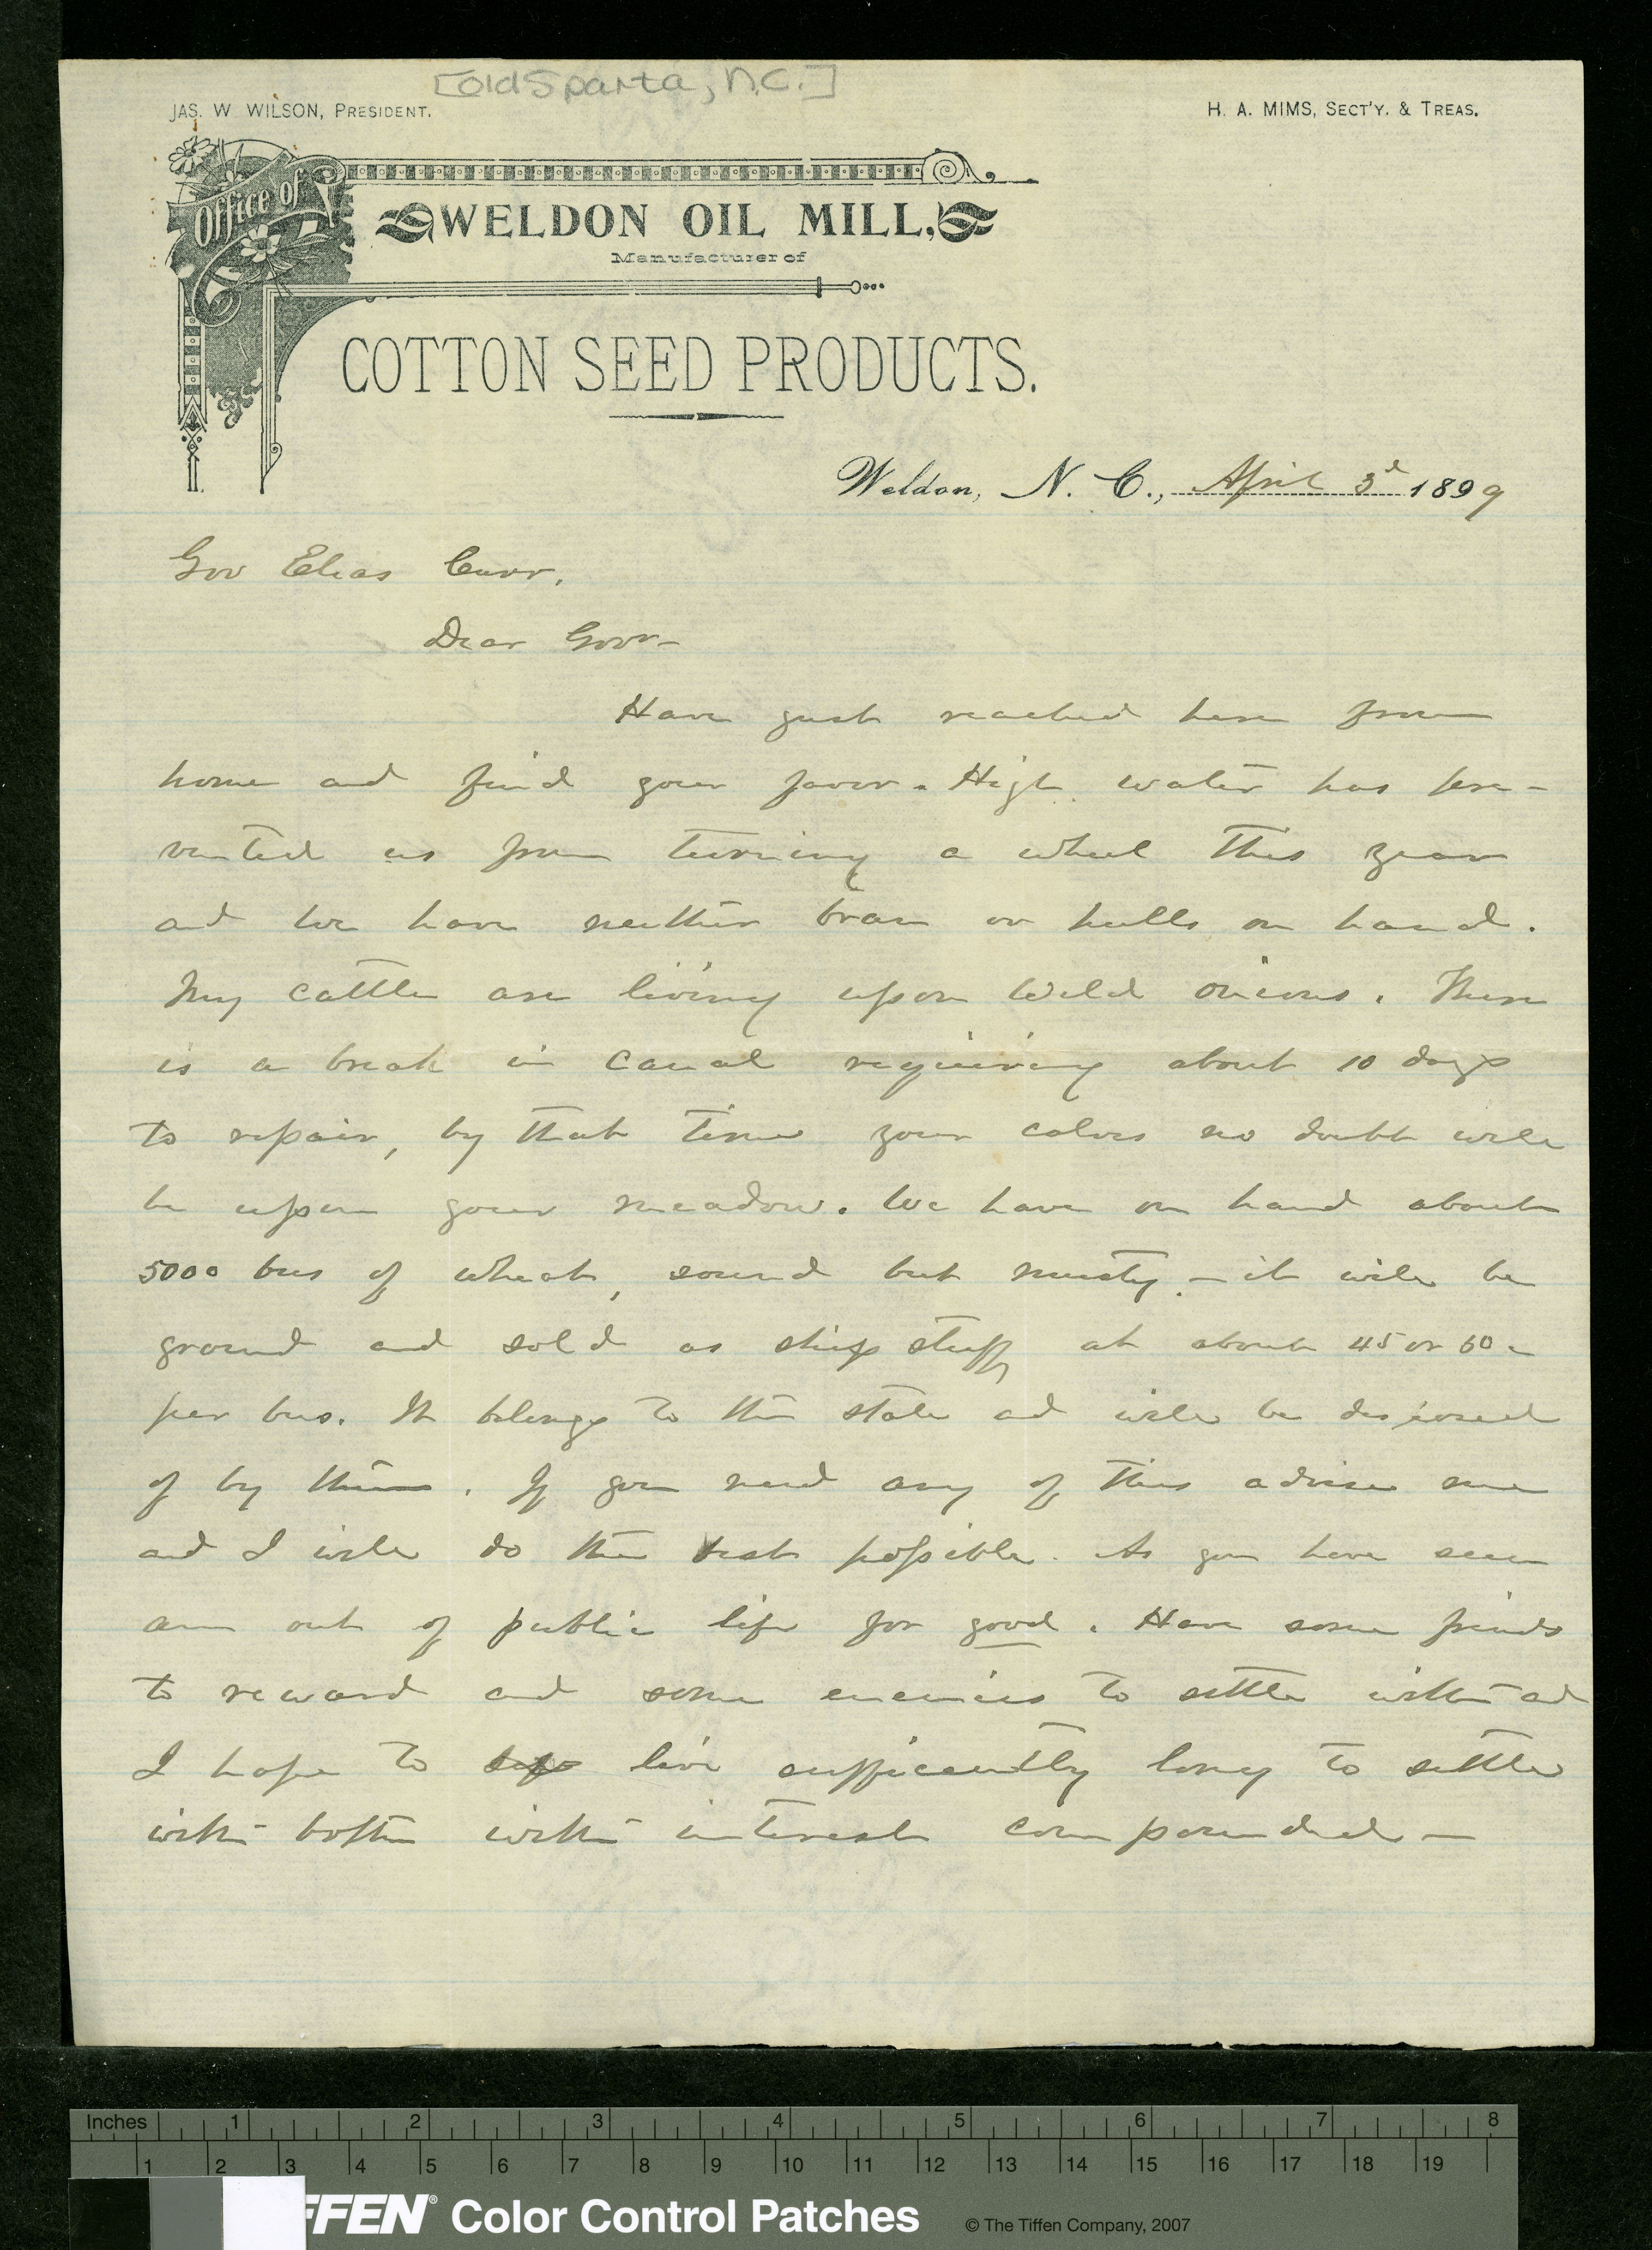 [Old Sparta, N.C.]
JAS. W. WILSON, PRESIDENT.
H. A. MIMS, SECT'Y. & TREAS.
Office of
WELDON OIL MILL,
Manufacturer of
COTTON SEED PRODUCTS.
Weldon, N. C., April 3d 1899
Gov Elias Carr,
Dear Govr -
Have just reached here from
home and find your favor. High water has pre-
vented us from turning a wheel this year
and we have neither bran or hulls on hand.
My cattle are living upon wild onions. There
is a break in canal requiring about 10 days
to repair, by that time your calves no doubt will
be upon your meadow. We have on hand about
5000 bus of wheat, sound but musty - it will be
ground and sold as ship stuff at about 45 or 50 c
per bus. It belongs to the state and will be disposed
of by them. If you need any of this advise me
and I will do the best possible. As you have seen
am out of public life for good. Have some friends
to reward and some enemies to settle with and
I hope to live sufficiently long to settle
with both with interest compounded -
Inches 1 2 3 4 5 6 7 8
1 2 3 4 5 6 7 8 9 10 11 12 13 14 15 16 17 18 19
FFEN® Color Control Patches © The Tiffen Company, 2007